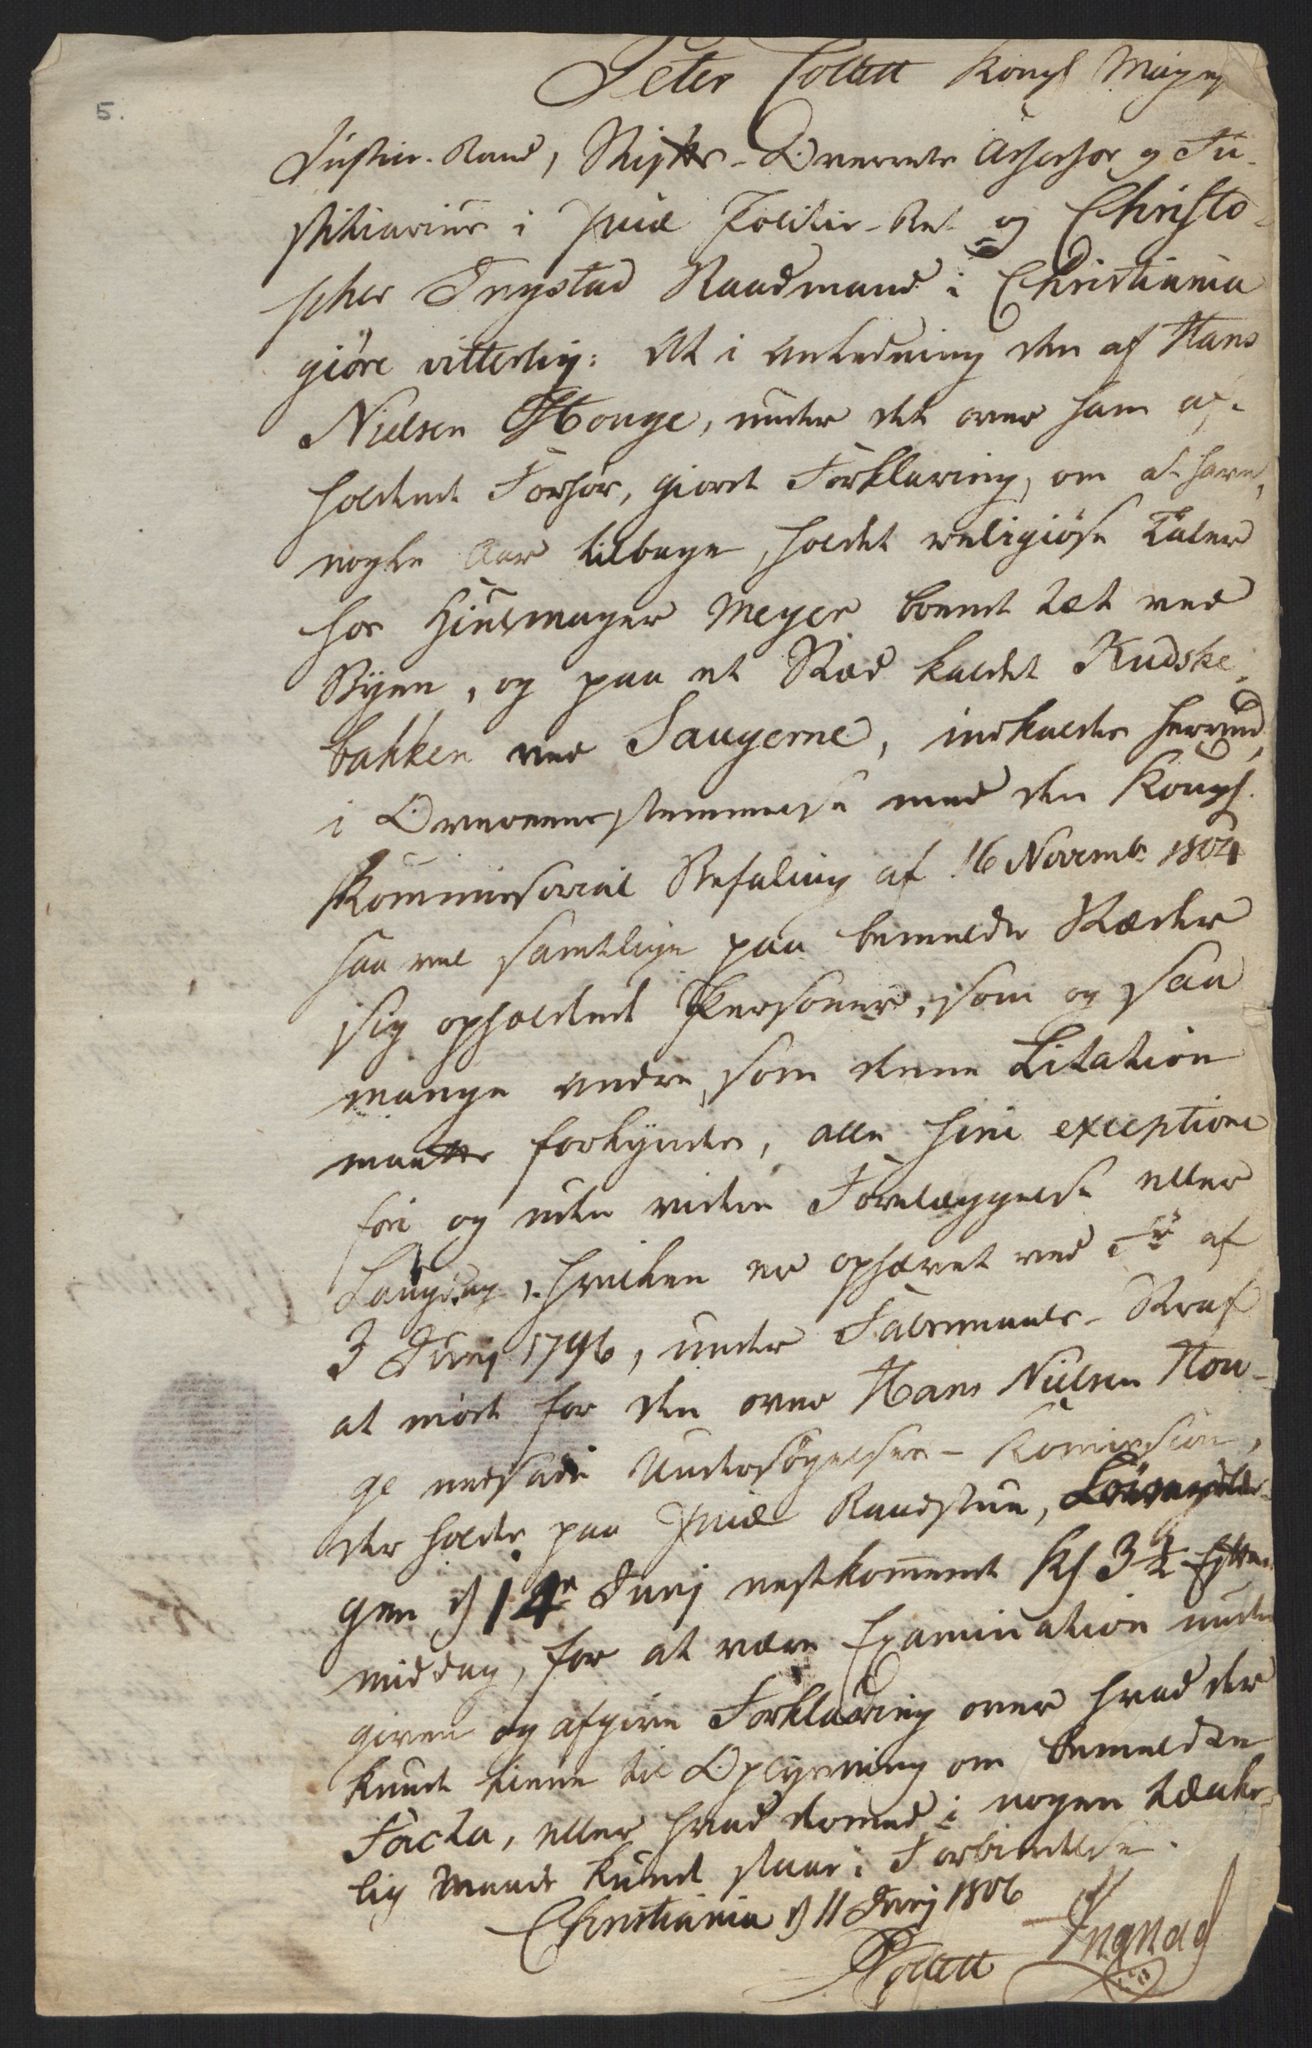 5.
Peter Collett Kongl Mayes
Justice-Raad, Stifts-Overrets Assessor og Ju-
stitiarius i Inqv. Politie-Ret og Christo-
pher Ingstad Raadmand i Christiania
giöre vitterlig: At i Anledning den af Hans
Nielsen Houge, under det over ham af-
holdende Forhör, giorde Forklaring, om at have,
nogle Aar tilbage, holdet religiöse Taler
hos Hiulmager Meyer boende tæt ved
Byen, og paa et Stæd kaldet Kudske-
bakken ved Saugerne, indkaldes herved,
i Overeensstemmelse med den Kongl.
Kommissorial Befaling af 16 Novembr 1804
saa vel samtlige paa bemeldte Stæder
sig opholdende Personer, som og saa
mange andre, som denne Citation
maatte forkyndes, alle sine exceptione
fori og uden videre Forelæggelse eller
Laugdag, hvilken er ophævet ved Fr af
3 Junj 1796, under Falsmaals-Straf
at möde for den over Hans Nielsen Hou-
ge nedsadte Undersögelses-Komission,
der holdes paa Raadstuen, Löverda-
gen d 14e Junj nestkommende Kl 3½ Efter-
middag, for at være Examination under
given og afgive Forklaring over hvad der
kunde tiene til Oplysning om bemeldte
Facta, eller hvad dermed i nogen tænke-
lig Maade kunde staae i Forbindelse.
Christiania d 11 Junj 1806
PCollett Ingstad